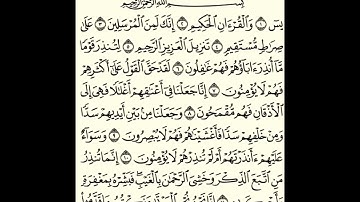 بِسْمِ اللَّهِ الرَّحْمَٰنِ الرَّحِيمِ
يسٓ ١ وَالْقُرْءَانِ الْحَكِيمِ ٢ إِنَّكَ لَمِنَ الْمُرْسَلِينَ ٣ عَلَىٰ
صِرَاطٍ مُّسْتَقِيمٍ ٤ تَنزِيلَ الْعَزِيزِ الرَّحِيمِ ٥ لِتُنذِرَ قَوْمًا
مَّا أُنذِرَ ءَابَاؤُهُمْ فَهُمْ غَافِلُونَ ٦ لَقَدْ حَقَّ الْقَوْلُ عَلَىٰ أَكْثَرِهِمْ
فَهُمْ لَا يُؤْمِنُونَ ٧ إِنَّا جَعَلْنَا فِي أَعْنَاقِهِمْ أَغْلَالًا فَهِيَ إِلَى
الْأَذْقَانِ فَهُم مُّقْمَحُونَ ٨ وَجَعَلْنَا مِن بَيْنِ أَيْدِيهِمْ سَدًّا
وَمِنْ خَلْفِهِمْ سَدًّا فَأَغْشَيْنَاهُمْ فَهُمْ لَا يُبْصِرُونَ ٩ وَسَوَاءٌ
عَلَيْهِمْ ءَأَنذَرْتَهُمْ أَمْ لَمْ تُنذِرْهُمْ لَا يُؤْمِنُونَ ١٠ إِنَّمَا تُنذِرُ
مَنِ اتَّبَعَ الذِّكْرَ وَخَشِيَ الرَّحْمَٰنَ بِالْغَيْبِ فَبَشِّرْهُ بِمَغْفِرَةٍ